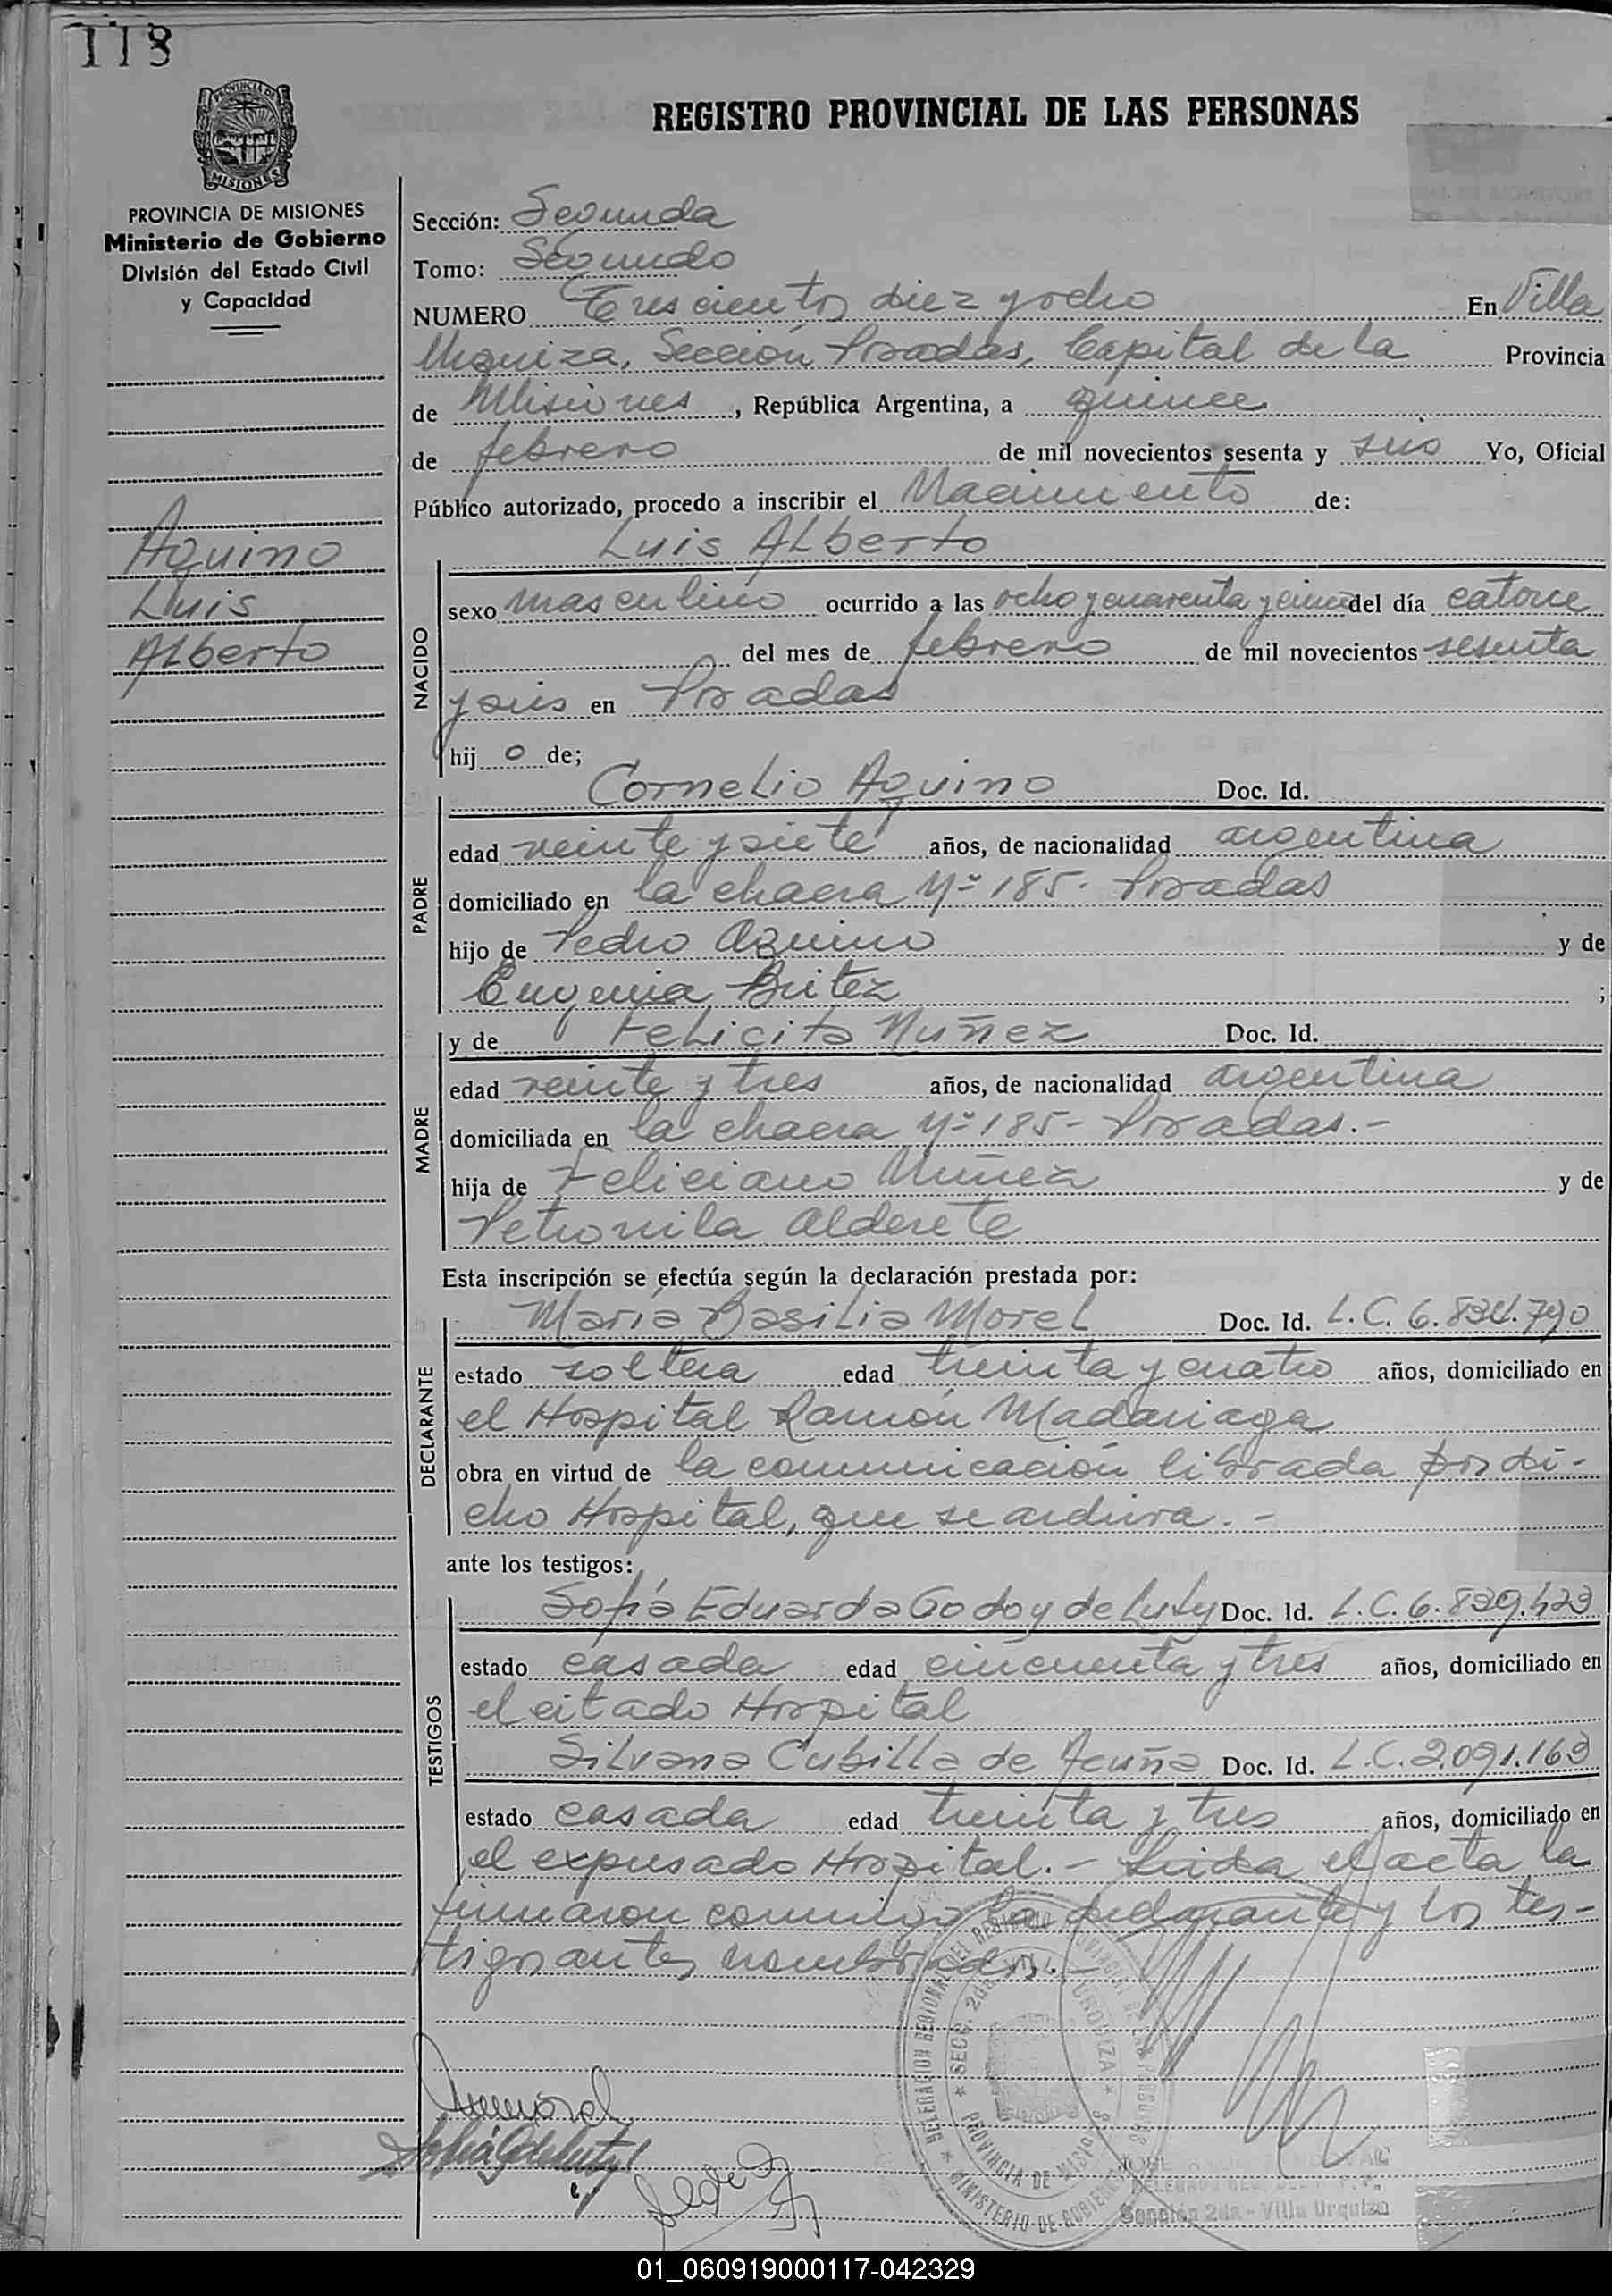 118
REGISTRO PROVINCIAL DE LAS PERSONAS
PROVINCIA DE
MISIONES
PROVINCIA DE MISIONES
Ministerio de Gobierno
División del Estado Civil
y Capacidad
Aquino
Luis
Alberto
Sección: Segunda
Tomo: Segundo
NUMERO Trescientos diez y ocho En Villa
Urquiza, Sección Posadas, Capital de la Provincia
de Misiones, República Argentina, a quince
de febrero de mil novecientos sesenta y seis Yo, Oficial
Público autorizado, procedo a inscribir el Nacimiento de:
NACIDO
Luis Alberto
sexo masculino ocurrido a las ocho y cuarenta y cinco del día catorce
del mes de febrero de mil novecientos sesenta
y seis en Posadas
hij o de;
PADRE
Cornelio Aquino Doc. Id.
edad veinte y siete años, de nacionalidad argentina
domiciliado en la chacra Nº 185. Posadas
hijo de Pedro Aquino y de
Eugenia Britez ;
MADRE
y de Felicita Nuñez Doc. Id.
edad veinte y tres años, de nacionalidad argentina
domiciliada en la chacra Nº 185- Posadas.-
hija de Feliciano Nuñez y de
Petronila Alderete
Esta inscripción se efectúa según la declaración prestada por:
DECLARANTE
María Basilia Morel Doc. Id. L.C. 6.834.790
estado soltera edad treinta y cuatro años, domiciliado en
el Hospital Ramón Madariaga
obra en virtud de la comunicación librada por di-
cho Hospital, que se archiva.-
ante los testigos:
TESTIGOS
Sofía Eduarda Godoy de Luty Doc. Id. L.C. 6.839.423
estado casada edad cincuenta y tres años, domiciliado en
el citado Hospital
Silvana Cubilla de Acuña Doc. Id. L.C. 2.091.163
estado casada edad treinta y tres años, domiciliado en
el expresado Hospital.- Leida el acta la
firmaron conmigo la declarante y los tes-
tigos antes nombrados.-
DELEGACION REGIONAL DEL REGISTRO PROVINCIAL DE LAS PERSONAS
SECC. 2da URQUIZA
PROVINCIA DE MISIONES
MINISTERIO DE GOBIERNO
Sección 2da - Villa Urquiza
01_060919000117-042329